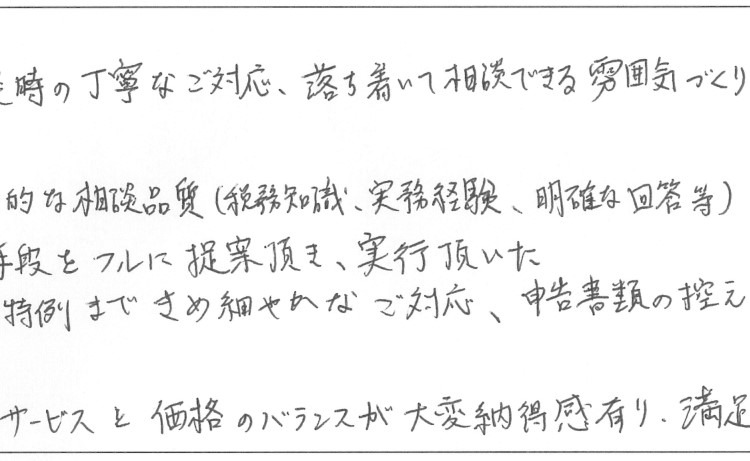 時の丁寧なご対応、落ち着いて相談できる雰囲気づくり
的な相談品質(税務知識、実務経験、明確な回答等)
手段をフルに提案頂き、実行頂いた
特例まできめ細やかなご対応、申告書類の控え
サービスと価格のバランスが大変納得感有り、満足